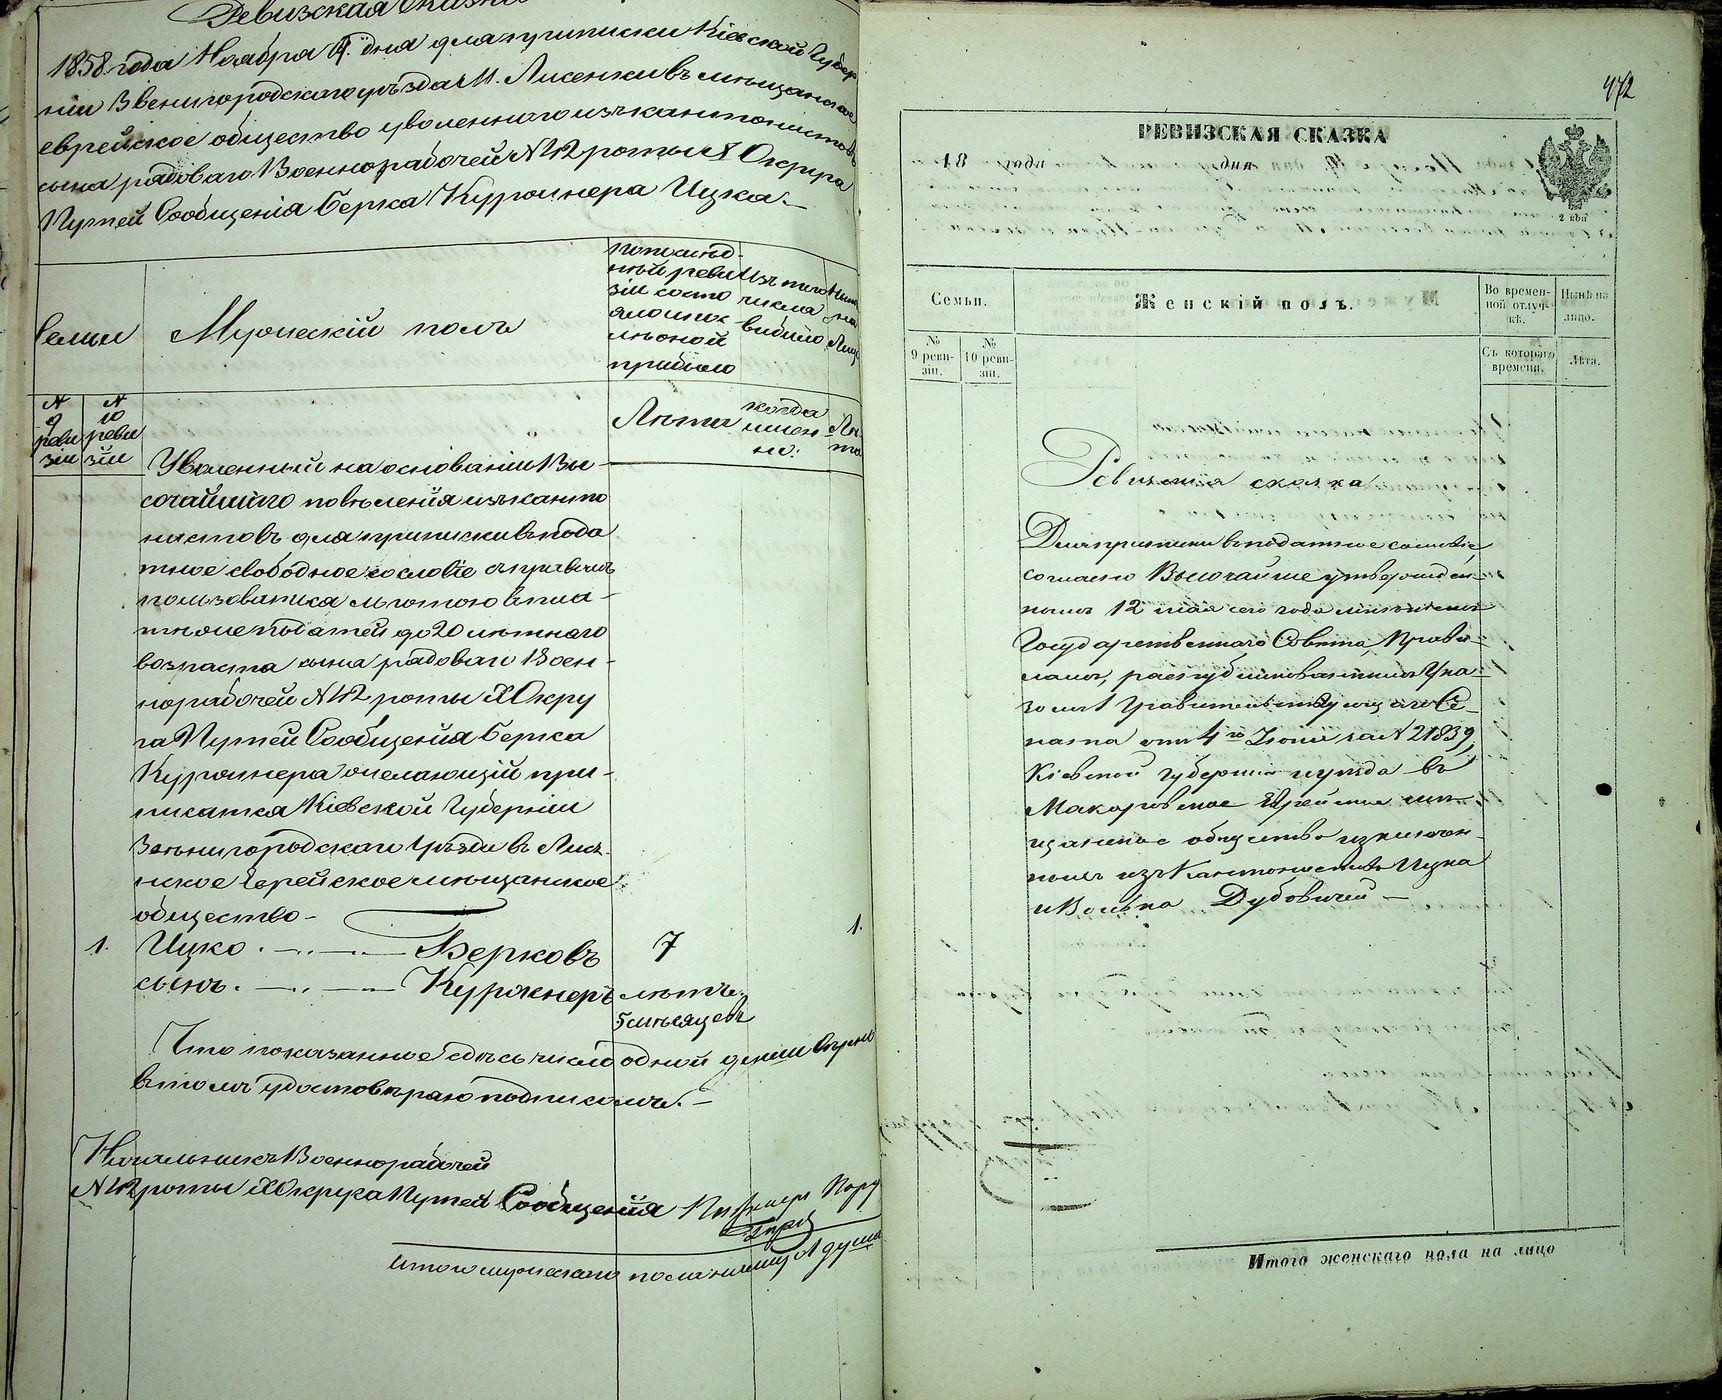 Ревизская сказка
1858 года Ноября 14. дня для приписки Кіевской Губер
ніи Звенигородскаго уѣзда М. Лисенки въ мѣщанское
еврейское общество уволеннаго изъ кантонистовъ
сына рядоваго Военнорабочей №42 роты X Округа
Путей Сообщенія Берка Куржнера Ицка.
Семьи
Мужескій полъ
по послѣд-
ней реви
зіи состо
яло и пос
лѣ оной
прибыло
Изъ того
числа
выбыло
Нынѣ
на
Лицо
№
9
реви
зіи
№
10
реви
зіи
Лѣта
когда
имен-
но:
Лѣ
та
Уволенный на основаніи Вы-
сочайшаго повѣленія изъ канто
нистовъ для приписки въ пода
тное свободное сословіе съ правомъ
пользоватся льготою въ пла-
тѣже податей до 20 лѣтняго
возраста сына рядоваго Воен-
норабочей №42 роты X Окру
га Путей Сообщенія Берка
Куржнера желающій при-
писатся Кіевской Губерніи
Звѣнигородскаго Уѣзда въ Лися-
нское Еврейское мѣщанское
общество-
1. Ицко Берковъ 7 1.
сынъ Куржнеръ лѣтъ
5 мѣсяцевъ
Что показанное здѣсь число одной души вѣрно
въ томъ удостовѣряю подписомъ.
Начальникъ Военнорабочей
№42 роты X Округа Путей Сообщенія Инженеръ
Итого мужескаго пола на лицо 1 душа
472
РЕВИЗСКАЯ СКАЗКА
18 года дня
2 коп
Семьи.
Женскій полъ.
Во времен-
ной отлуч-
кѣ.
Нынѣ на
лицо.
№
9 реви-
зіи.
№
10 реви-
зіи.
Съ котораго
времени.
Лѣта.
Ревизская сказка
Для приписки въ податное сословіе
согласно Высочайше утвержден-
нымъ 12 мая сего года мнѣніемъ
Государственнаго Совѣта, Прави-
ламъ, распубликованнымъ Ука-
зомъ Правительствующаго Се-
ната отъ 4го Іюня за № 21839,
Кіевской губерніи и уѣзда въ
Макаровское Еврейское мѣ-
щанское общество изключен-
ныхъ изъ Кантонистовъ Ицка
и Волька Дубовичей -
Итого женскаго пола на лицо